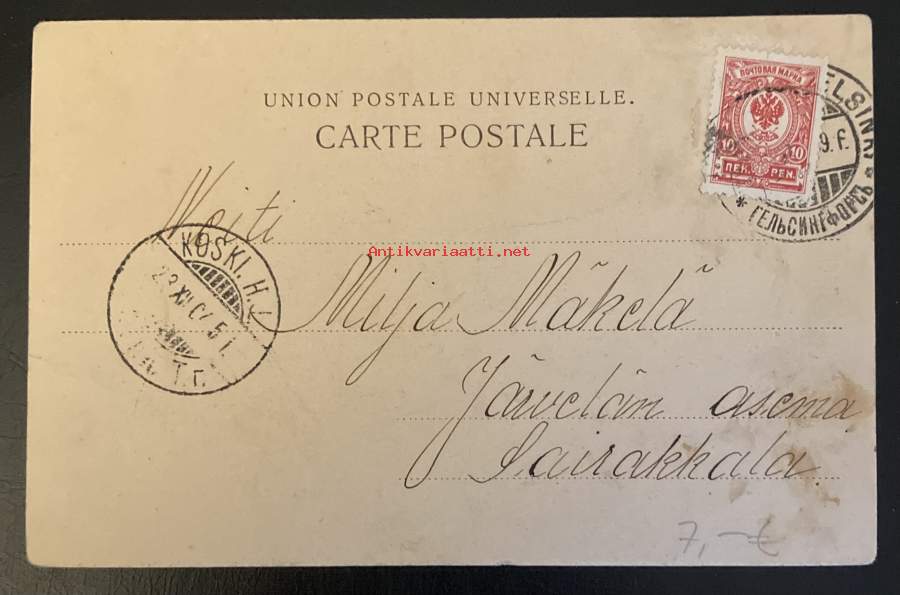 UNION POSTALE UNIVERSELLE.
CARTE POSTALE
ПОЧТОВАЯ МАРКА
10 10
ПЕН. PEN.
ELSINKI
9.F.
* ГЕЛЬСИНГФОРСЪ *
Antikvariaatti.net
Neiti
KOSKI. H.
23.XII.07
Т.Г.
Milja Mäkelä
Järvelän asema
Sairakkala
7,—€